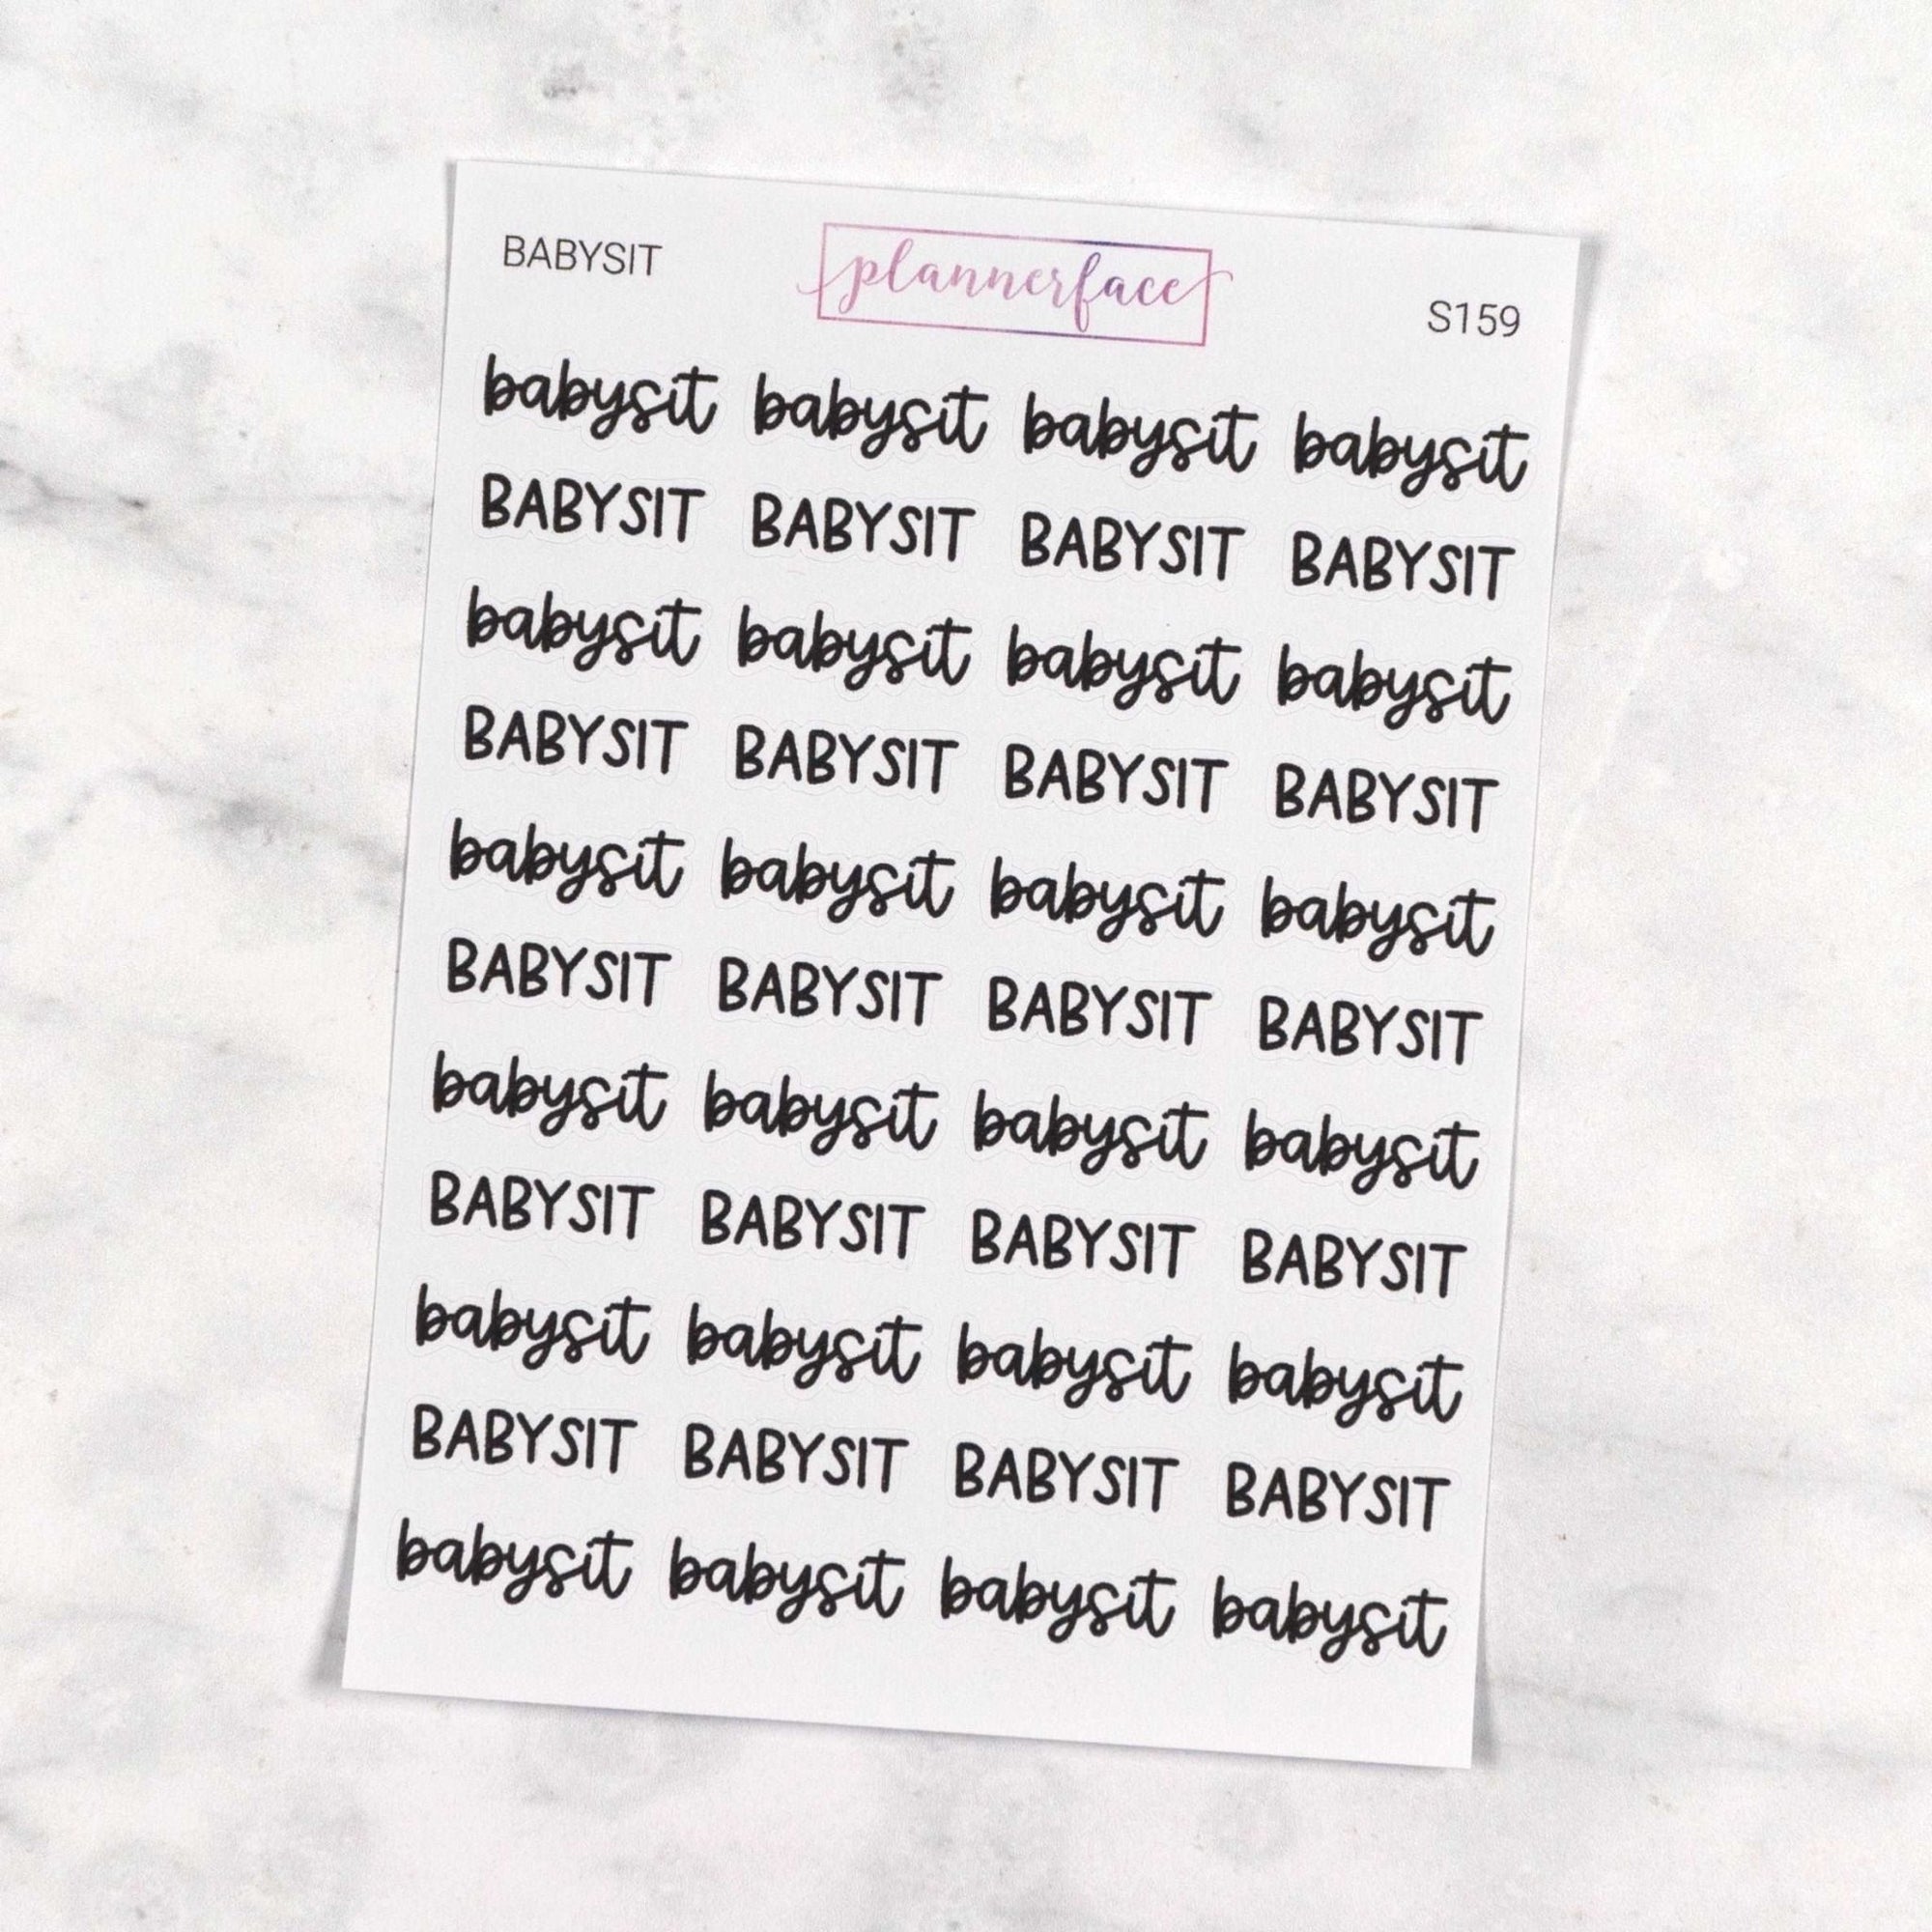 BABYSIT plannerface S159
babysit babysit babysit babysit
BABYSIT BABYSIT BABYSIT BABYSIT
babysit babysit babysit babysit
BABYSIT BABYSIT BABYSIT BABYSIT
babysit babysit babysit babysit
BABYSIT BABYSIT BABYSIT BABYSIT
babysit babysit babysit babysit
BABYSIT BABYSIT BABYSIT BABYSIT
babysit babysit babysit babysit
BABYSIT BABYSIT BABYSIT BABYSIT
babysit babysit babysit babysit